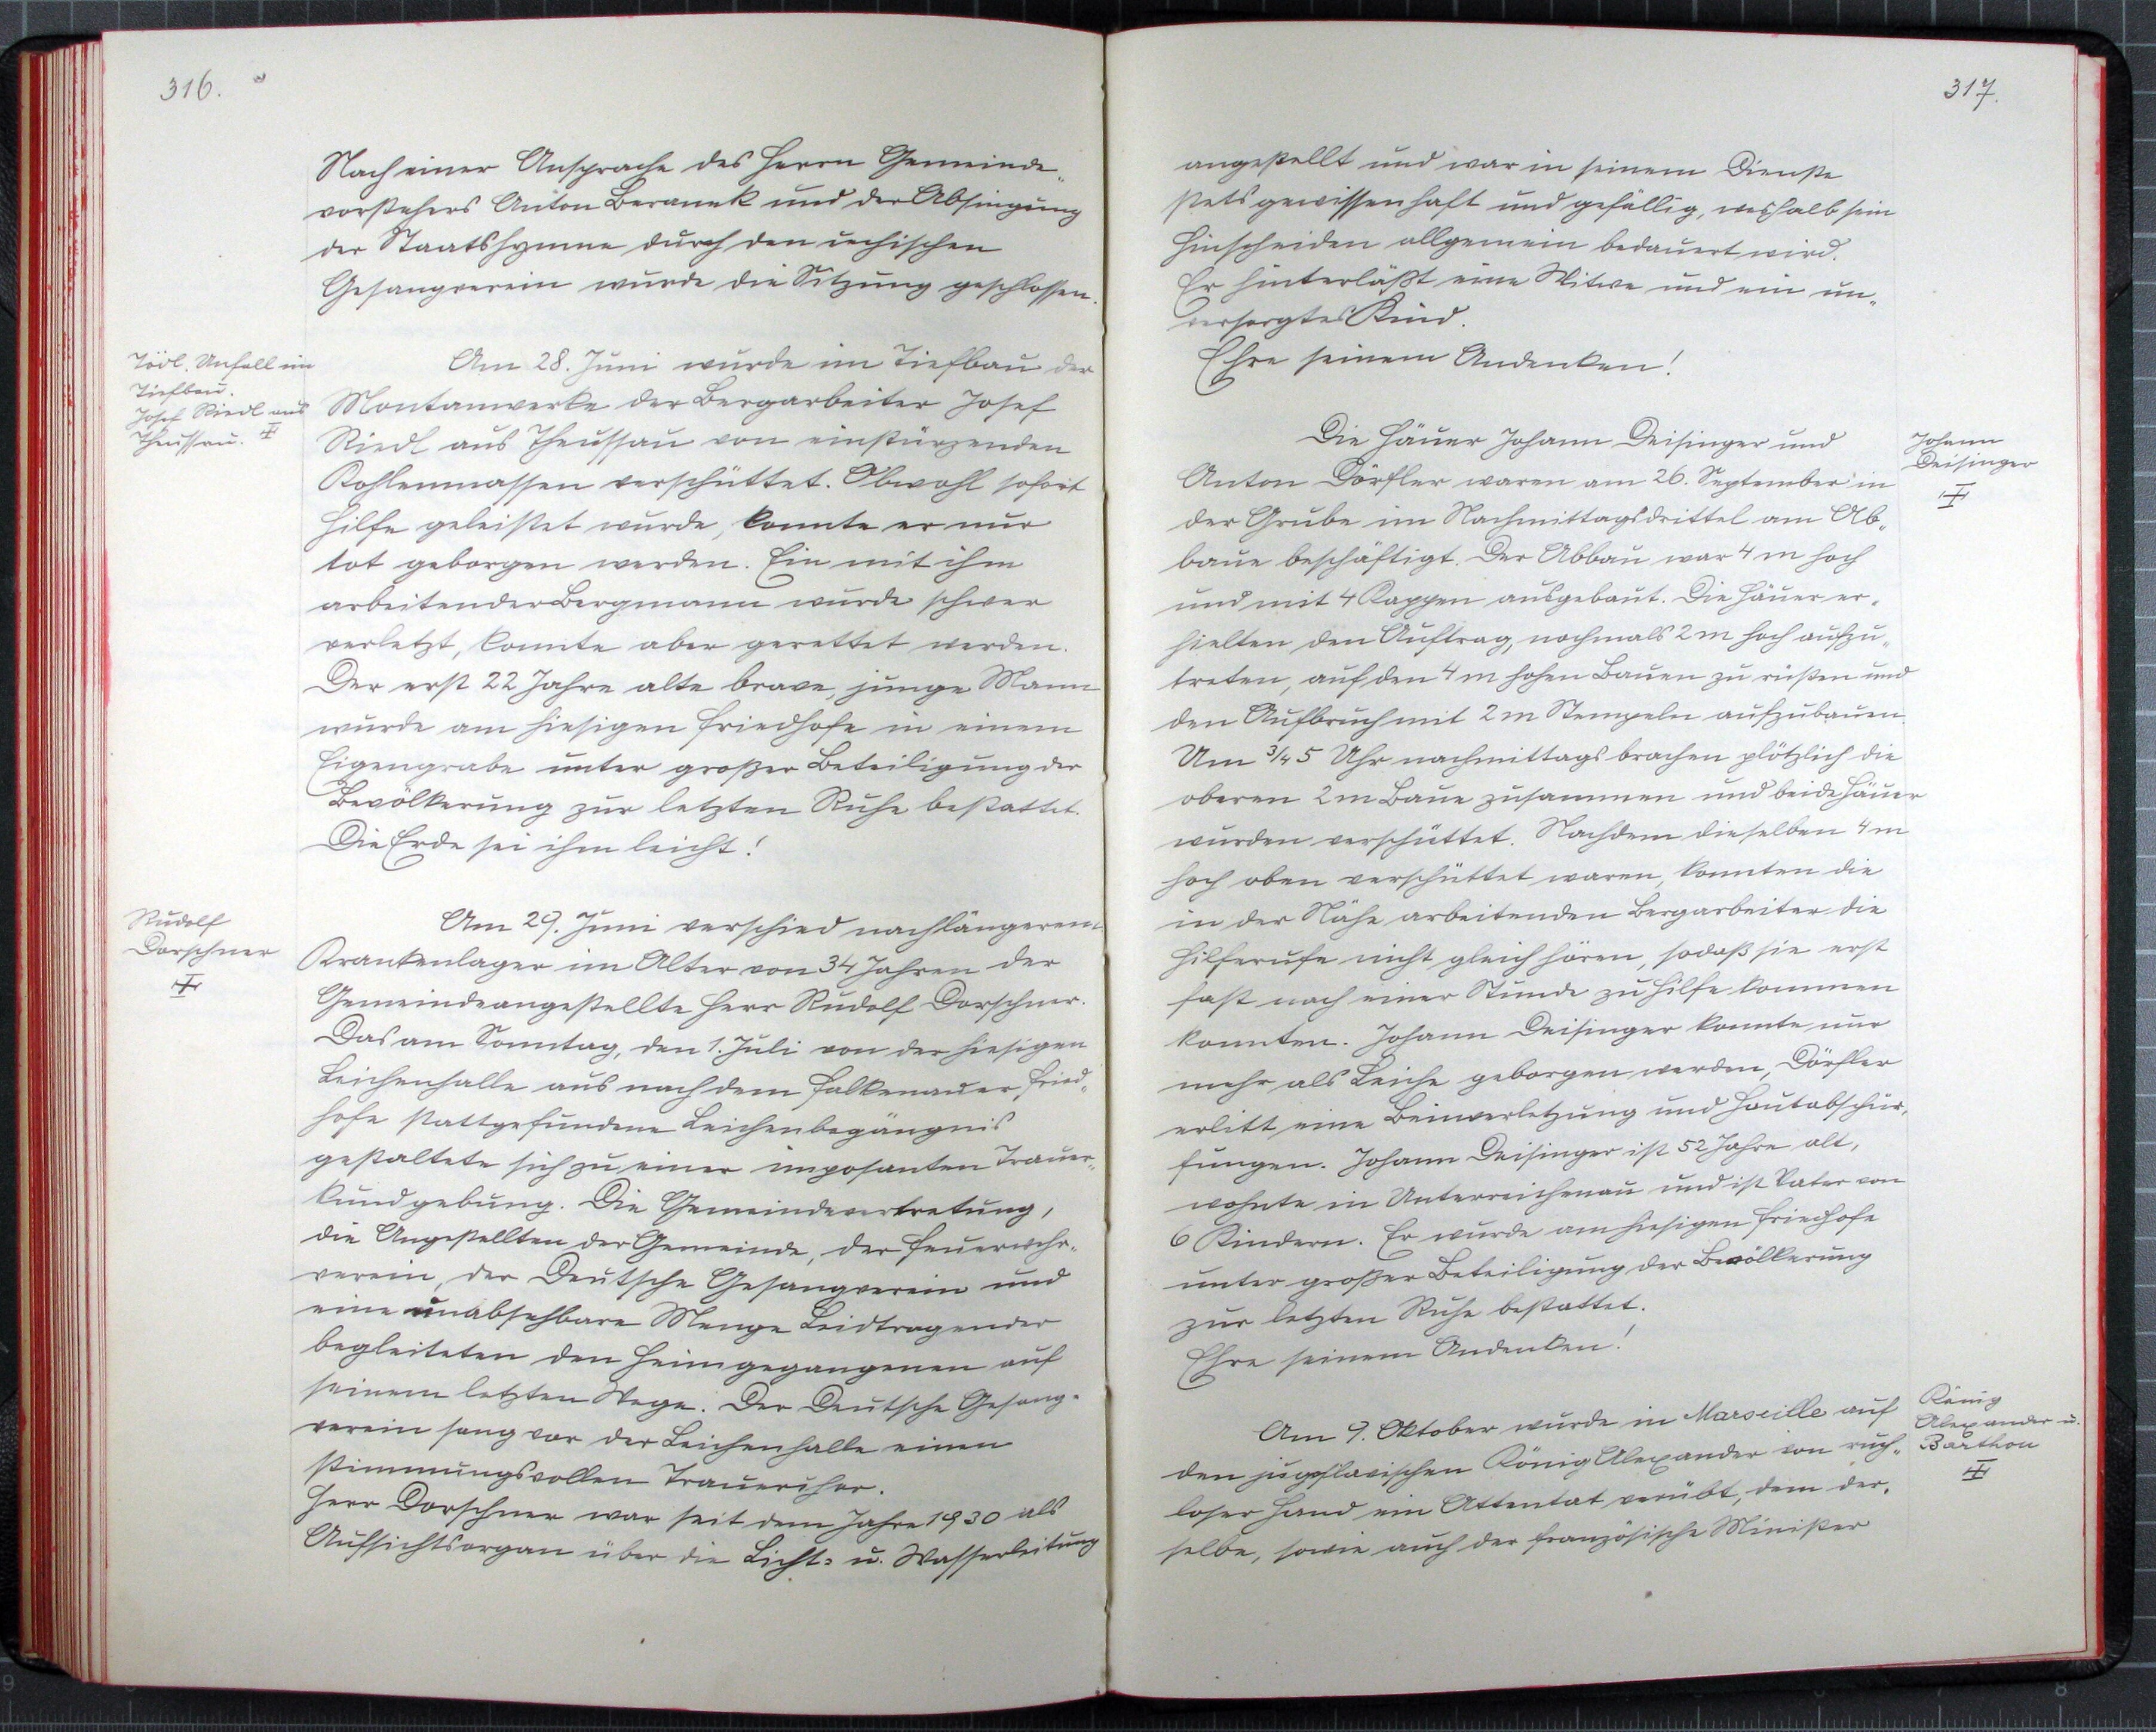 316.
Nach einer Ansprache des Herrn Gemeinde„
vorstehers Anton Beranek und der Absingung
der Staatshymne durch den čechischen
Gesangverein wurde die Sitzung geschlossen.
Tödl. Unfall im
Tiefbau.
Josef Riedl aus
Theussau. ‡
Am 28. Juni wurde im Tiefbau der
Montanwerke der Bergarbeiter Josef
Riedl aus Theussau von einstürzenden
Kohlenmassen verschüttet. Obwohl sofort
Hilfe geleistet wurde, konnte er nur
tot geborgen werden. Ein mit ihm
arbeitender Bergmann wurde schwer
verletzt, konnte aber gerettet werden.
Der erst 22 Jahre alte brave, junge Mann
wurde am hiesigen Friedhofe in einem
Eigengrabe unter großer Beteiligung der
Bevölkerung zur letzten Ruhe bestattet.
Die Erde sei ihm leicht!
Rudolf
Dorschner
‡
Am 29. Juni verschied nach längerem
Krankenlager im Alter von 34 Jahren der
Gemeindeangestellte Herr Rudolf Dorschner.
Das am Sonntag, den 1. Juli von der hiesigen
Leichenhalle aus nach dem Falkenauer Fried„
hofe stattgefundene Leichenbegängnis
gestaltete sich zu einer imposanten Trauer„
kundgebung. Die Gemeindevertretung,
die Angestellten der Gemeinde, der Feuerwehr„
verein, der Deutsche Gesangverein und
eine unabsehbare Menge Leidtragender
begleiteten den Heimgegangenen auf
seinem letzten Wege. Der Deutsche Gesang„
verein sang vor der Leichenhalle einen
stimmungsvollen Trauerchor.
Herr Dorschner war seit dem Jahre 1930 als
Aufsichtsorgan über die Licht= u. Wasserleitung
317.
angestellt und war in seinem Dienste
stets gewissenhaft und gefällig, weshalb sein
Hinscheiden allgemein bedauert wird.
Er hinterläßt eine Witwe und ein un„
versorgtes Kind.
Ehre seinem Andenken!
Die Häuer Johann Deisinger und
Anton Dörfler waren am 26. September in
der Grube im Nachmittagsdrittel am Ab„
baue beschäftigt. Der Abbau war 4 m hoch
und mit 4 Kappen ausgebaut. Die Häuer er„
hielten den Auftrag, nochmals 2 m hoch aufzu„
treten, auf den 4 m hohen Bauen zu rüsten und
den Aufbruch mit 2 m Stempeln aufzubauen.
Um ¾ 5 Uhr nachmittags brachen plötzlich die
oberen 2 m Baue zusammen und beide Häuer
wurden verschüttet. Nachdem dieselben 4 m
hoch oben verschüttet waren, konnten die
in der Nähe arbeitenden Bergarbeiter die
Hilferufe nicht gleich hören, sodaß sie erst
fast nach einer Stunde zu Hilfe kommen
konnten. Johann Deisinger konnte nur
mehr als Leiche geborgen werden, Dörfler
erlitt eine Beinverletzung und Hautabschür„
fungen. Johann Deisinger ist 52 Jahre alt,
wohnte in Unterreichenau und ist Vater von
6 Kindern. Er wurde am hiesigen Friedhofe
unter großer Beteiligung der Bevölkerung
zur letzten Ruhe bestattet.
Ehre seinem Andenken!
Johann
Deisinger
‡
Am 9. Oktober wurde in Marseille auf
den jugoslavischen König Alexander von ruch„
loser Hand ein Attentat verübt, dem der„
selbe, sowie auch der französische Minister
König
Alexander u.
Barthou
‡